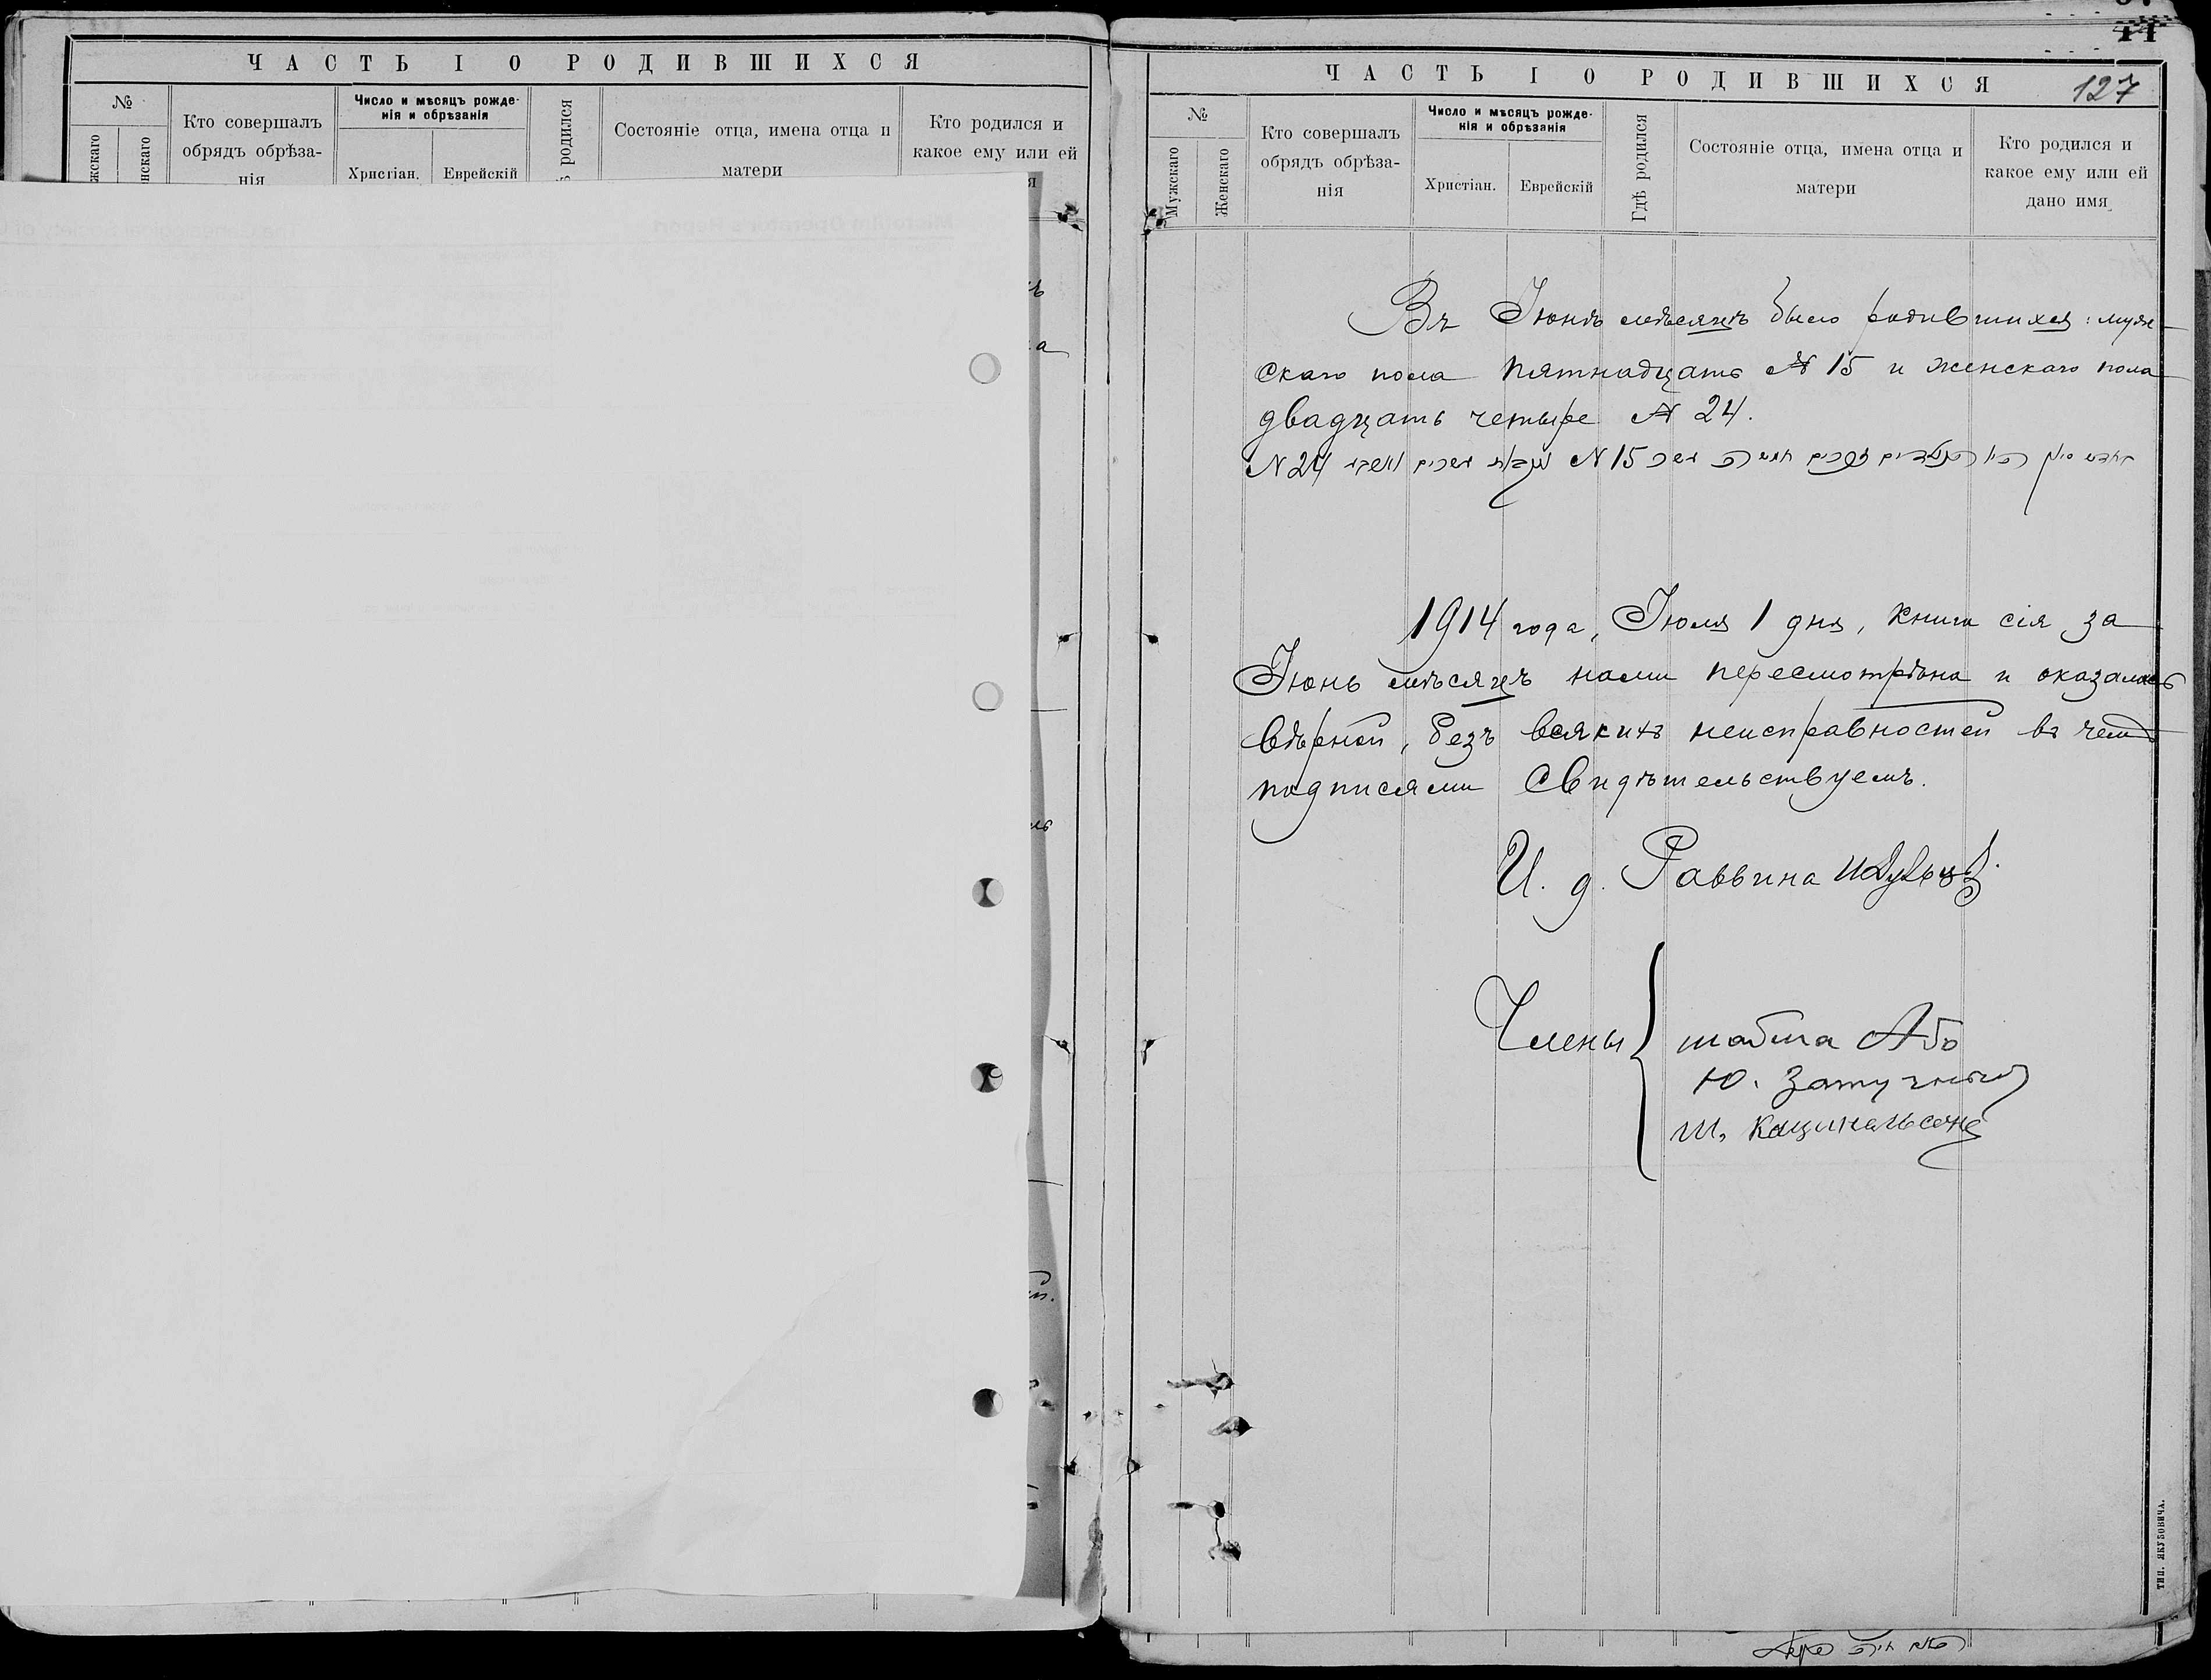 ЧАСТЬ I О РОДИВШИХСЯ
№
Кто совершалъ
обрядъ обрѣза-
нія
Число и мѣсяцъ рожде-
нія и обрѣзанія
Христіан.
Еврейскій
родился
Состояніе отца, имена отца и
матери
Кто родился и
какое ему или ей
ЧАСТЬ I О РОДИВШИХСЯ
127
№
Мужскаго
Женскаго
Кто совершалъ
обрядъ обрѣза-
нія
Число и мѣсяцъ рожде-
нія и обрѣзанія
Христіан.
Еврейскій
Гдѣ родился
Состояніе отца, имена отца и
матери
Кто родился и
какое ему или ей
дано имя
Въ Іюнѣ мѣсяцѣ было родившихся: муж-
скаго пола пятнадцать № 15 и женскаго пола
двадцать четыре № 24.
N 15 N 24
1914 года, Іюля 1 дня, книга сія за
Іюнь мѣсяцъ нами пересмотрѣна и оказалась
вѣрной, безъ всякихъ неисправностей въ чемъ
подписями свидѣтельствуемъ.
И. д. Раввина
Члены
Або
Ю. Затучный
Ш. Кацнельсонъ
ТИП. ЯКУБОВИЧА.